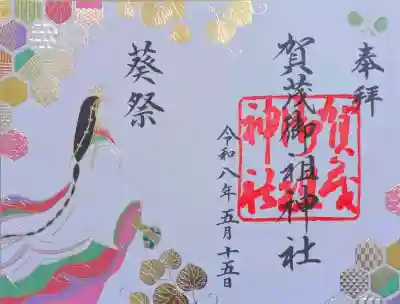 奉拝
賀茂御祖神社
賀茂御祖神社
令和八年五月十五日
葵祭